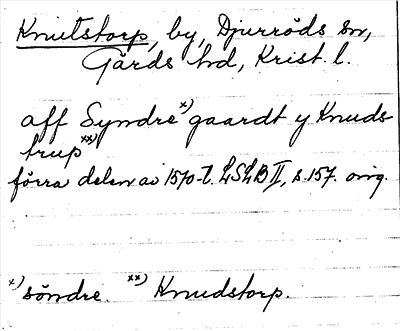 Knutstorp, by, Djurröds sn,
Gärds hd, Krist. l.
aff Syndre x) gaardt y Knuds
trup xx)
förra delen av 1570-t. LSLB II, s. 157. orig.
x) söndre. xx) Knudstorp.